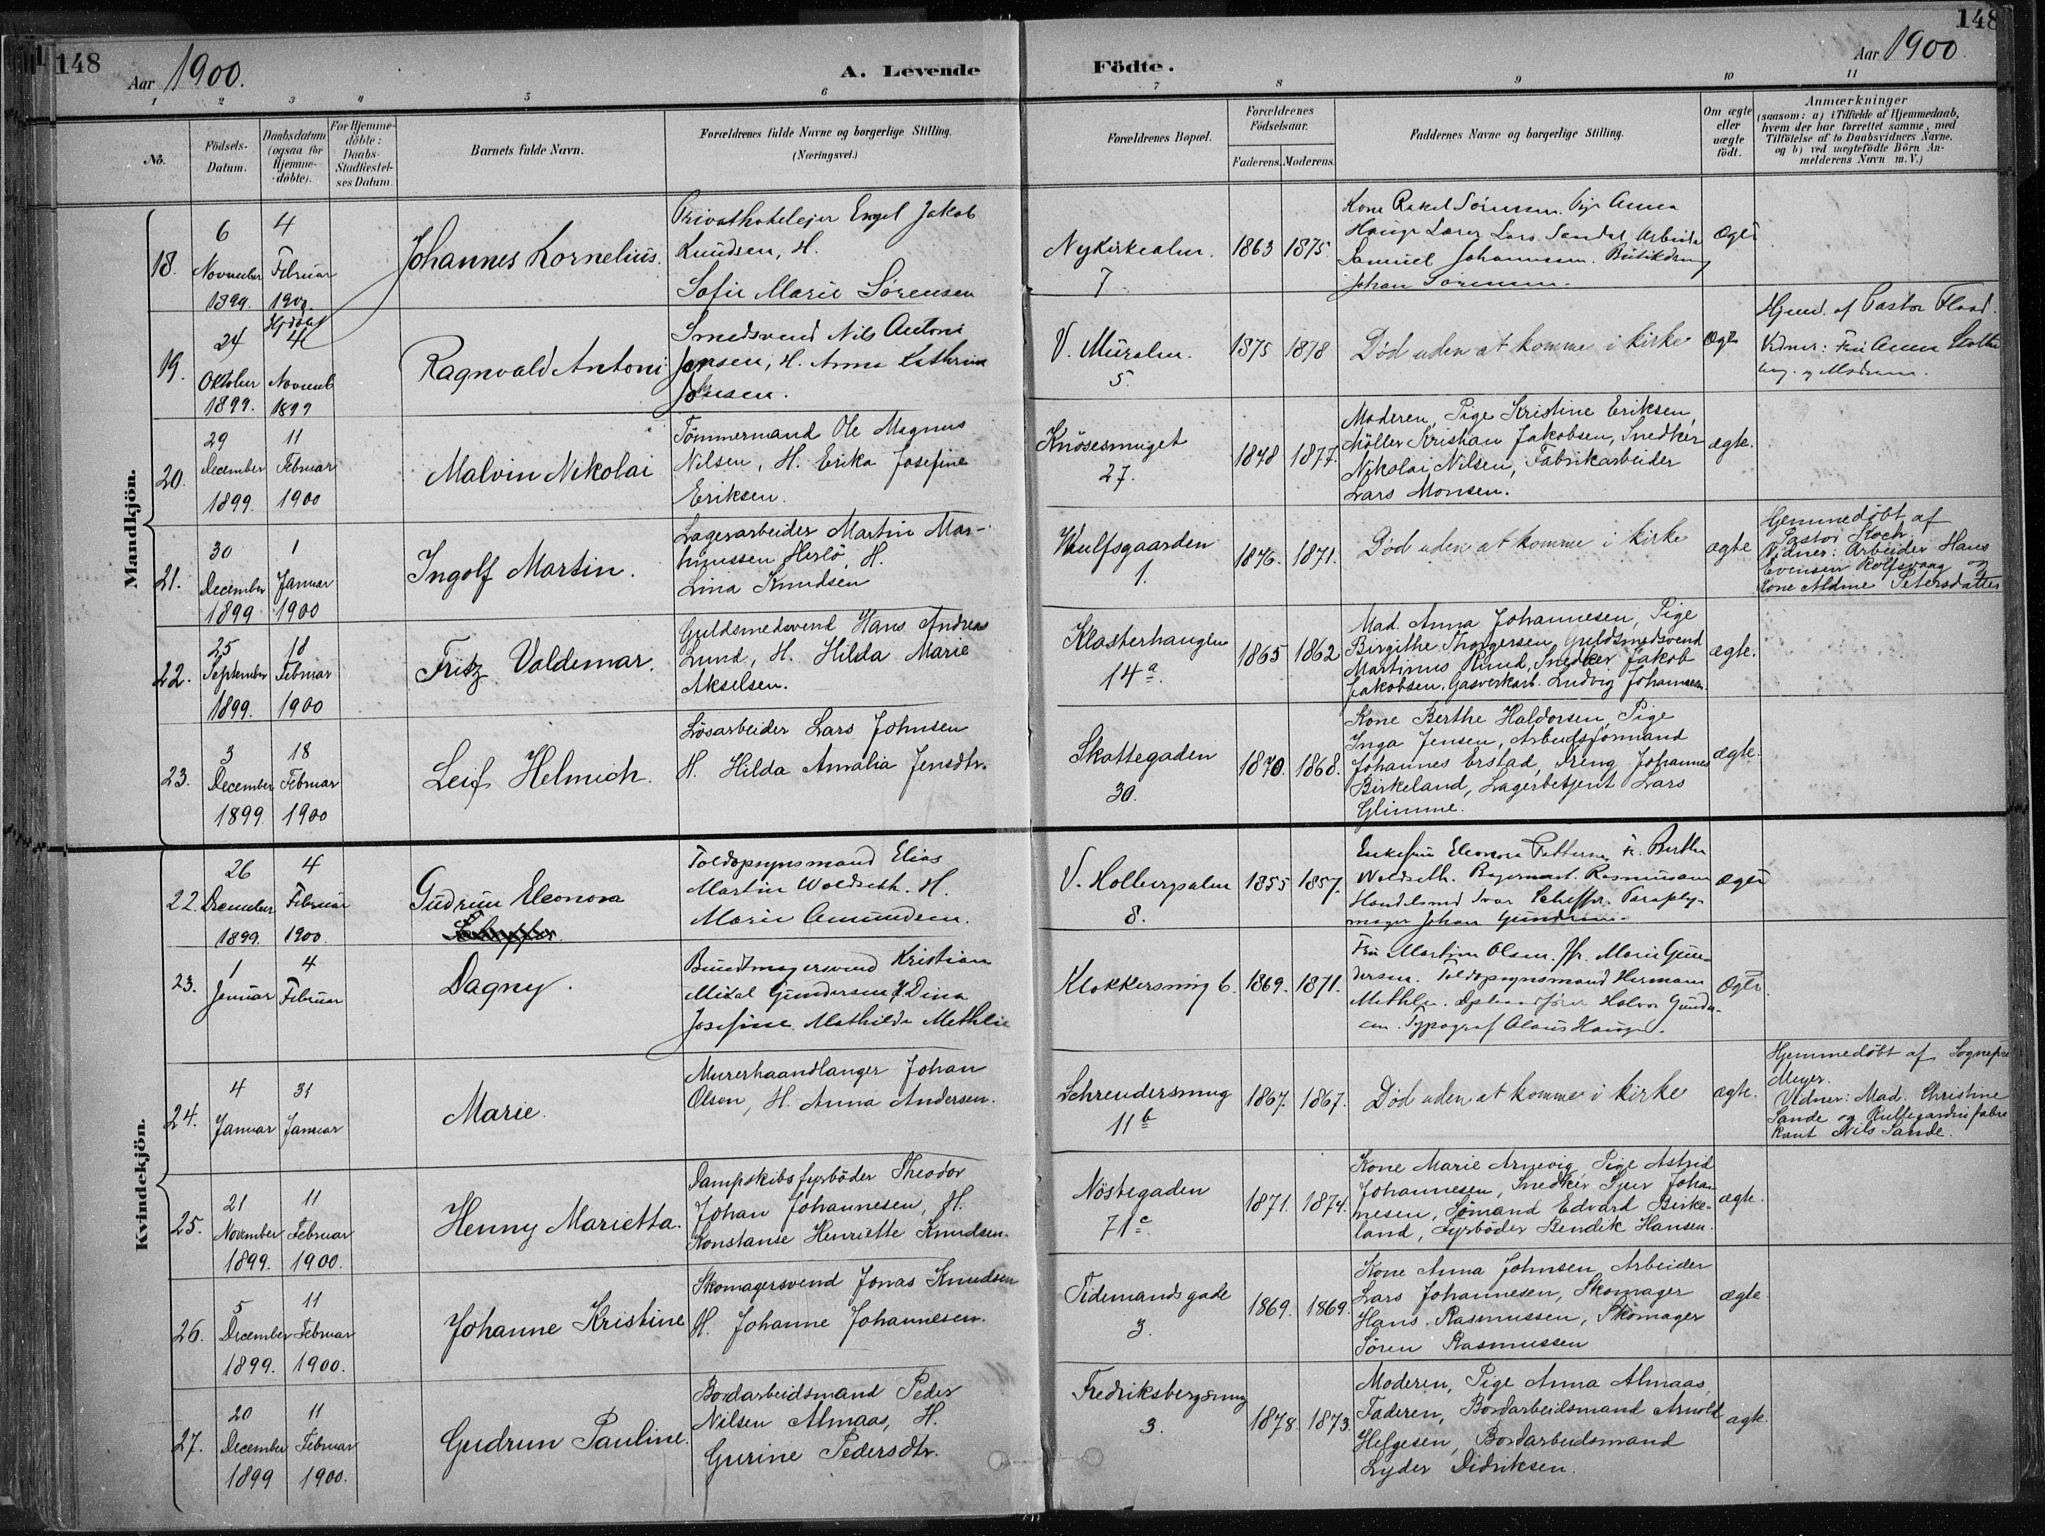 148
Aar 1900.
A. Levende
Födte.
Aar 1900.
148
1 2 3 4 5 6 7 8 9 10 11
No.
Födsels-
Datum.
Daabsdatum
(ogsaa for
Hjemme-
døbte).
For Hjemme-
döbte:
Daabs-
Stadfæstel-
ses Datum.
Barnets fulde Navn.
Forældrenes fulde Navne og borgerlige Stilling.
(Næringsvei.)
Forældrenes Bopæl.
Forældrenes
Födselsaar.
Faderens. Moderens.
Faddernes Navne og borgerlige Stilling.
Om ægte
eller
uægte
födt.
Anmærkninger
(saasom: a) i Tilfælde af Hjemmedaab,
hvem der har forrettet samme, med
Tilföielse af to Daabsvidners Navne.
og b) ved uægtefödte Börn An-
melderens Navn m. V.)
Mandkjön.
18.
6
November
1899.
4
Februar
1900
Johannes Kornelius.
Privathoteleier Engel Jakob
Knudsen, H.
Sofie Marie Sørensen
Nykirkealm.
7
1863 1875
Kone Rakel Sörensen. Pige Anna
Hauge Lærer Lars Sandal Arbeider
Samuel Johannesen.
Johan Sörensen.
Ægte
19.
24
Oktober
1899.
Hjdøbt
4
Novemb
1899
Ragnvald Antoni
Smedsvend Nils Antoni
Jensen, H. Anna Kathrine
Johnsen.
V. Muralm.
5.
1875 1878
Död uden at komme i kirke
Ægte
Hjemd. af Pastor Flood.
Vidner: Frk Anna
og Moderen.
20.
29
December
1899.
11
Februar
1900
Malvin Nikolai
Tømmermand Ole Magnus
Nilsen, H. Erika Josefine
Eriksen.
Knösesmuget
27.
1878 1877.
Moderen, Pige Kristine Eriksen,
Möller Kristian Jakobsen, Snedker
Nikolai Nilsen, Fabrikarbeider
Lars Monsen.
ægte.
21.
30
December
1899
1
Januar
1900
Ingolf Martin.
Lagerarbeider Martin Mar-
tinussen Herlö, H.
Lina Knudsen
Wulfsgaarden
1.
1876. 1871.
Död uden at komme i kirke
ægte
Hjemmedöbt af
Pastor Koch
Vidner: Arbeider Hans
Evensen Rolfsvaag og
Kone Petersdatter
22.
25
September
1899.
18
Februar
1900
Fritz Valdemar.
Guldsmedsvend Hans Andreas
Lund, H. Hilda Marie
Akselsen.
Klosterhaugen
14 a.
1865 1862
Mad. Anna Johannesen, Pige
Birgithe Thorgersen, Guldsmedsvend
Martinus Rund, Snedker Jakob
Jakobsen, Gasverkarb. Ludvig Johannesen.
ægte.
23.
3
December
1899.
18
Februar
1900
Leif Helmich.
Lösarbeider Lars Johnsen
H. Hilda Amalia Jensdtr.
Skottegaden
30.
1870. 1868.
Kone Berthe Haldorsen, Pige
Inga Jensen, Arbeidsformand
Johannes Erstad, Dreng Johannes
Birkeland, Lagerbetjent Lars
Glimme.
ægte.
Kvindekjön.
22.
26
December
1899.
4
Februar
1900.
Gudrun Eleonora
Toldopsynsmand Elias
Martin Woldseth. H.
Marie Amundsen.
V. Holbergsalm
8.
1855 1857.
Enkefru Eleonora Pettersen, Fr. Berthe
Woldseth. Bagermest. Rasmussen
Handelsmd Ivar Scheffer. Paraply-
mager Johan Gundersen.
Ægte
23.
1
Januar
4
Februar
Dagny.
Bundtmagersvend Kristian
Midal Gundersen & Dina
Josefine Mathilde Methlie
Klokkersmug 6.
1869. 1871.
Fru Martine Olsen. Jfr. Marie Gun-
dersen. Toldopsynsmand Herman
Methlie. Halvor Gunder-
sen. Typograf Olaus Hauge.
Ægte
24.
4
Januar
31
Januar
Marie.
Murerhaandlanger Johan
Olsen, H. Anna Andersen.
Schreudersmug
11 b
1867. 1867.
Död uden at komme i kirke
ægte.
Hjemmedöbt af Sognepr.
Meyer.
Vidner: Mad. Christine
Sande og Rullegardinfabri
kant Nils Sande.
25.
21
November
1899.
11
Februar
1900.
Henny Marietta.
Dampskibsfyrböder Theodor
Johan Johannesen, H.
Konstanse Henriette Knudsen.
Nöstegaden
71 c.
1871. 1874.
Kone Marie Arnevig, Pige Astrid
Johannesen, Snedker Sjur Johan-
nesen, Sömand Edvard Birke-
land, Fyrböder Bendik Hansen.
ægte.
26.
5
December
1899.
11
Februar
1900.
Johanne Kristine
Skomagersvend Jonas Knudsen
H. Johanne Johannesen.
Tidemandsgade
3.
1869. 1869.
Kone Anna Johnsen, Arbeider
Lars Johannesen, Skomager
Hans Rasmussen, Skomager
Sören Rasmussen
ægte
27.
20
December
1899
11
Februar
1900.
Gudrun Pauline.
Bordarbeidsmand Peder
Nilsen Almaas, H.
Gurine Pedersdtr.
Fredriksbergsmug
3.
1878 1873.
Moderen, Pige Anna Almaas,
Faderen, Bordarbeidsmand Arnold
Helgesen, Bordarbeidsmand
Lyder Didriksen.
ægte.